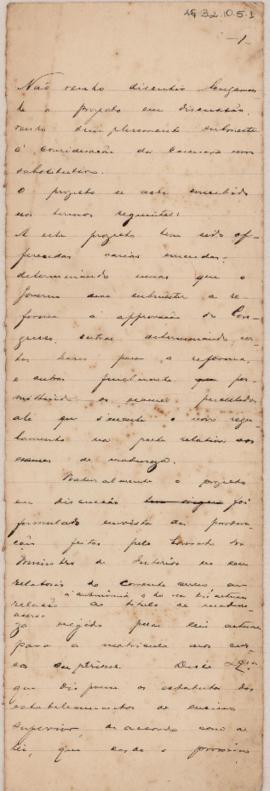 29.32.10.5.1
-1-
Não venho discutir longamen
te o projecto em discussão,
venho simplesmente submetter
á consideração da Camara um
substitutivo.
O projecto se acha concebido
nos termos seguintes:
A este projecto tem sido of-
ferecidas varias emendas,
determinando umas que o
Governo submetter a re-
forma á approvação do Con-
gresso, outras determinando cer-
tas bases para a reforma,
e outras finalmente per-
mittindo os exames parcellados
até que o novo regu-
lamento na parte relativa aos
exames de madureza.
Naturalmente o projecto
em discussão foi
formulado em vista das
ções feitas pelo Ministro do
Interior no seu
relatorio do corrente anno
relação ao titulo de madure
za exigido pelas leis actuaes
para a matricula nos cur-
sos superiores. Desde
que dispoem os estatutos dos
estabelecimentos de ensino
superior, de accordo com a
lei, que